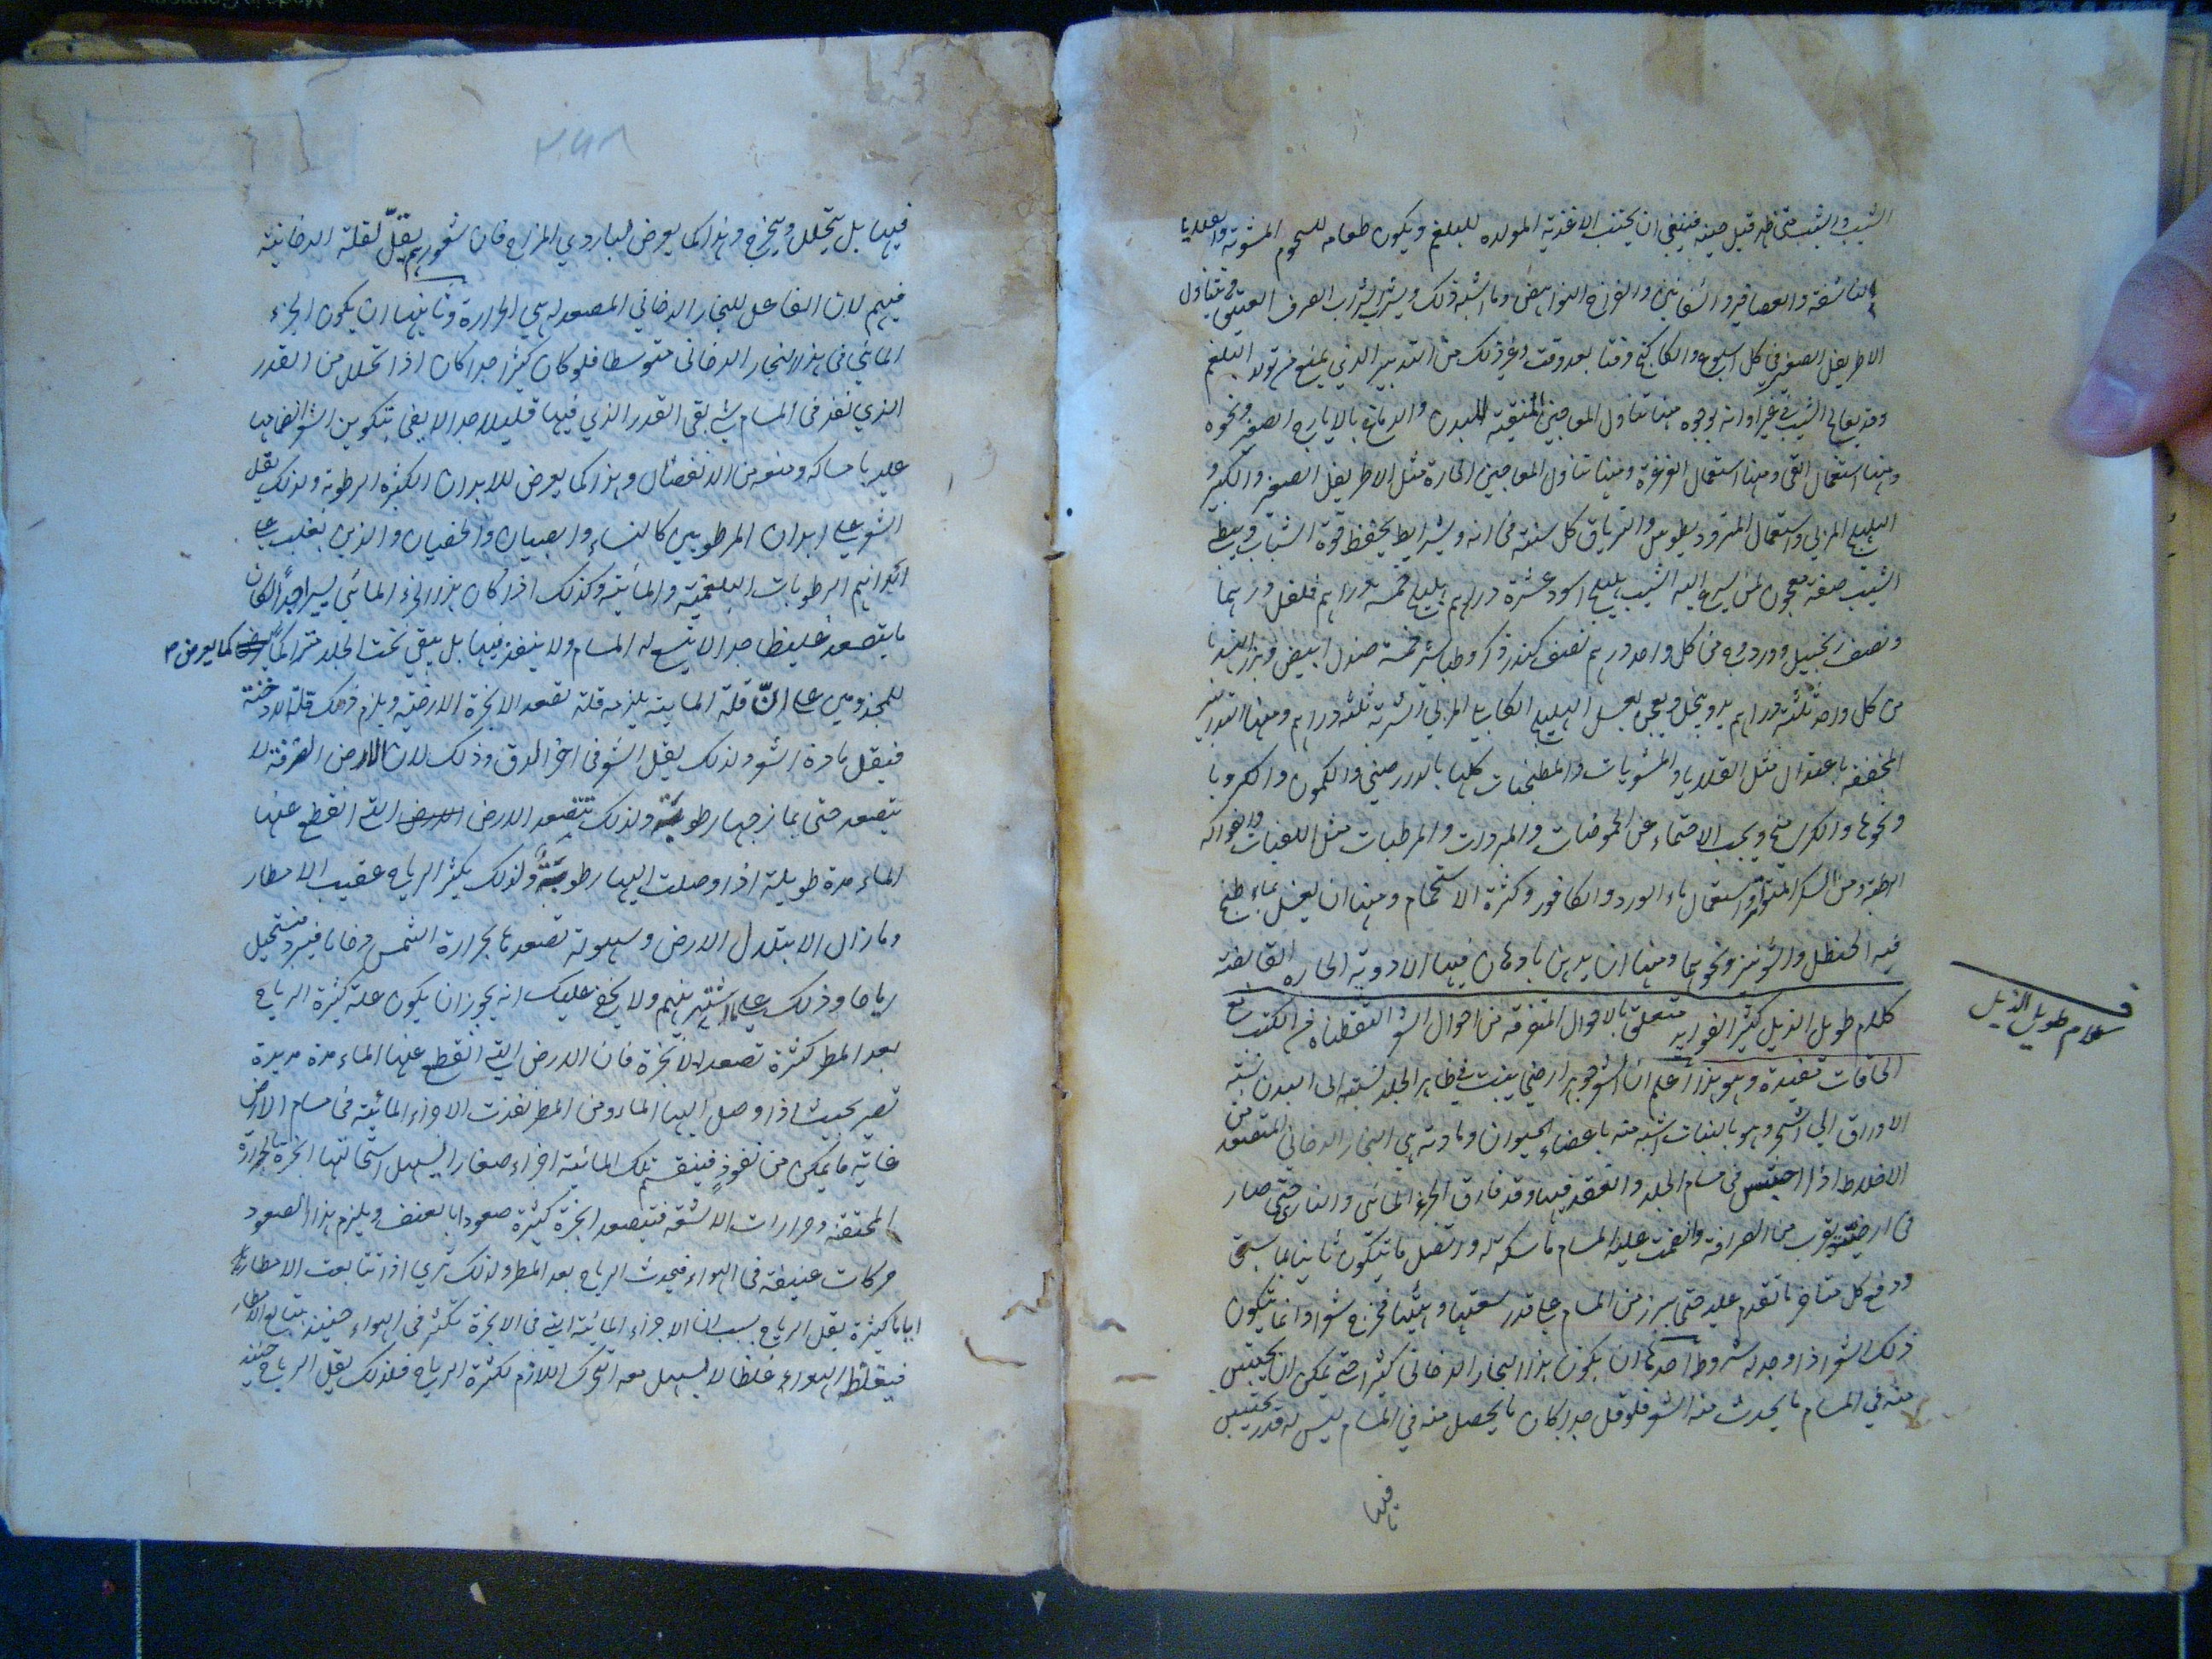 الشيب والشيب متى ظهر قبل حينه فينبغي ان يجتنب الاغذية المولده للبلغم ويكون طعامه للحوم المشوية والقلايا
الناشفة والعصافير والشفانين والفراخ النواهض وما اشبه ذلك ويشرب الشراب الصرف العتيق وتناول
الاطريفل الصغير في كل اسبوع والكابلي وقتا بعد وقت وغير ذلك من التدبير الذي يمنع من تولد البلغم
وقد يعالج الشيب في غير اوانه بوجوه منها تناول المعاجين المنقية للبدن والدماغ بالايارج الصغير ونحوه
ومنها استعمال القي ومنها استعمال الغرغرة ومنها تناول المعاجين الحارة مثل الاطريفل الصغير والكبير و
الهليلج المربي واستعمال المثروديطوس والترياق كل سنة فانه وبشرايط يحفظ قوة الشباب ويبطي
الشيب صفة معجون لمن يسرع اليه الشيب هليلج اسود عشرة دراهم بليلج خمسة دراهم فلفل درهما
ونصف زنجبيل ودوقوه من كل واحد درهم نصف كندر ذكر وطباشير خمسة صندل ابيض وبزر الهندبا
من كل واحد ثلثة دراهم يدق وينخل ويعجن بعسل الهليلج الكابلي المربي الشربة ثلثة دراهم ومنها التدابير
المجففة باعتدال مثل القلايا والمشويات والمطجنات كلها بالدارصيني والكمون والكرويا
ونحوها والكرسنج ويجب الاحتماء عن الحموضات والمبردات والمرطبات مثل اللبنيات والفواكه
الرطبة ومن السكر المتواتر واستعمال ماء الورد والكافور وكثرة الاستحمام ومنها ان يغسل بماء طبخ
فيه الحنظل والشونيز ونحوهما ومنها ان يدهن بادهان فيها الادوية الحاره القابضة
كلام طويل الذيل كثير الفوايد متعلق بالاحوال المتفرقة من احوال الشعر التقطناه من الكتب مع
الحاقات مفيدة وهو هذا اعلم ان الشعر جوهر ارضي ينبت في ظاهر الجلد نسبته الى البدن نسبة
الاوراق الي الشجر وهو بالنبات اشبه منه باعضاء الحيوان ومادته هي البخار الدخاني المتصعد من
الاخلاط اذا احتبس في مسام الجلد وانعقد فيها وقد فارق الجزء المائي والناري حتي صار
في ارضيته يقرب من الصرافة وانضمت عليه المسام ماسكة له واتصل ما يتكون ثانيا بما سبق
ودفع كل متاخر ما تقدم عليه حتى يبرز من المسام على قدر سعتها وهيئتها فخرج شعرا وانما يتكون
ذلك الشعر اذا وجد له شروط احدها ان يكون هذا البخار الدخاني كثيرا حتى يمكن ان يحتبس
منه في المسام ما يحدث منه الشعر فلو قل جدا كان ما يحصل منه في المسام ليس له قدر يحتبس
فيها
كلام طويل الذيل
فيها بل يتحلل ويخرج وهذا كما يعرض لباردي المزاج فان شعورهم يقلّ لقلة الدخانية
فيهم لان الفاعل للبخار الدخاني المصعد له هي الحرارة وثانيها ان يكون الجزء
المائي في هذا البخار الدخاني متوسطا فلو كان كثيرا جدا كان اذا تحلل من القدر
الذي نفذ في المسام شي بقي القدر الذي فيها قليلا جدا لا يفي بتكوين الشعر انضمامها
عليه بامساكه ومنعه من الانفصال وهذا كما يعرض للابدان الكثيرة الرطوبة ولذلك يقل
الشعر على ابدان المرطوبين كالنساء والصبيان والخصيان والذين يغلب على
ابدانهم الرطوبات البلغمية والمائية وكذلك اذا كان هذا الجزء المائي يسيرا جدا لكان
ما يتصعد غليظا جدا لا يتسع له المسام ولا ينفذ فيها بل يبقي تحت الجلد متراكما كما يعرض
للمجذومين على انّ قلة المايية يلزمه قلة تصعد الابخرة الارضية ويلزم ذلك قلة الادخنة
فيقل مادة الشعر ولذلك يقل الشعر في اخر الدق وذلك لان الارض الصرفة لا
يتصعد حتى يمازجها رطوبة ولذلك تتصعد الارض التي انقطع عنها
الماء مدة طويلة اذا وصلت اليها رطوبة ولذلك يكثر الرياح عقيب الامطار
وما زال الا بتلال الارض وسهولة تصعدها بحرارة الشمس دخانا فيبرد فيستحيل
رياحا وذلك على ما اشتهر بينهم ولا يخفي عليك انه يجوز ان يكون علة كثرة الرياح
بعد المطر كثرة تصعد الابخرة فان الارض التي انقطع عنها الماء مدة مديدة
تصير بحيث اذا وصل اليها الماء ومن المطر نفذت الاجزاء المائية في مسام الارض
غاية ما يمكن من نفوذ فينقسم تلك المائية اجزاء صغارا ليسهل استحالتها ابخرة بالحرارة
المحتقنة وحرارات الاشعة فتتصعد ابخرة كثيرة صعودا بالعنف ويلزم هذا الصعود
حركات عنيفة في الهواء فيحدث الرياح بعد المطر ولذلك تري اذا تتابعت الامطار
اياما كثيرة يقل الرياح بسبب ان الاجزاء المائية التي في الابخرة تكثر في الهواء حينئذ بتتابع الامطار
فيغلظ الهواء غلظا لا يسهل معه التحرك اللازم لكثرة الرياح فلذلك يقل الرياح حينئذ